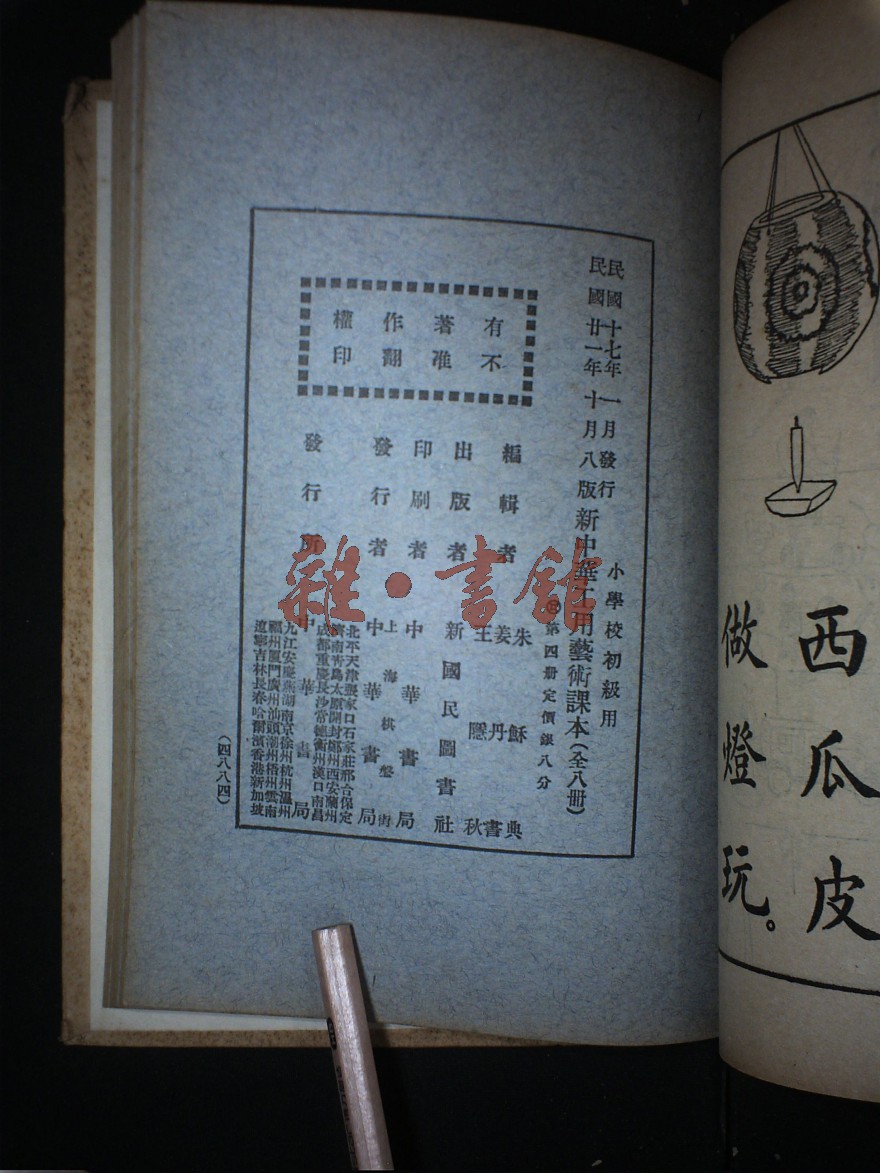 西瓜皮
做燈玩。
民國十七年一月發行
民國廿一年十月八版
小學校初級用
新中華工用藝術課本(全八冊)
第四册定價銀八分
編輯者 朱穌典 姜丹書 王隱秋
出版者 新國民圖書社
印刷者 中華書局
上海棋盤街
發行者 中華書局
發行所 中華書局
北平天津張家口石家莊邢台保定
濟南青島太原開封鄭州西安蘭州
成都重慶長沙常德衡州漢口南昌
九江安慶蕪湖南京徐州杭州溫州
福州厦門廣州汕頭潮州梧州雲南
遼寧吉林長春哈爾濱香港新加坡
有著作權
不准翻印
(四八八四)
雜·書館